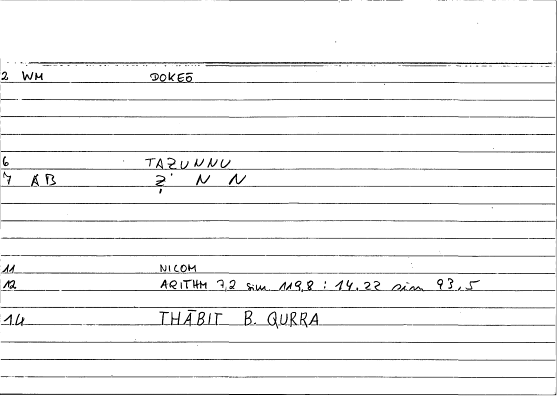 2 WM DOKEŌ
6 TAẒUNNU
7 AB Ẓ N N
11 NICOM
12 ARITHM 7,2 sim 119,8 : 14.22 sim 93.5
14 THĀBIT B. QURRA